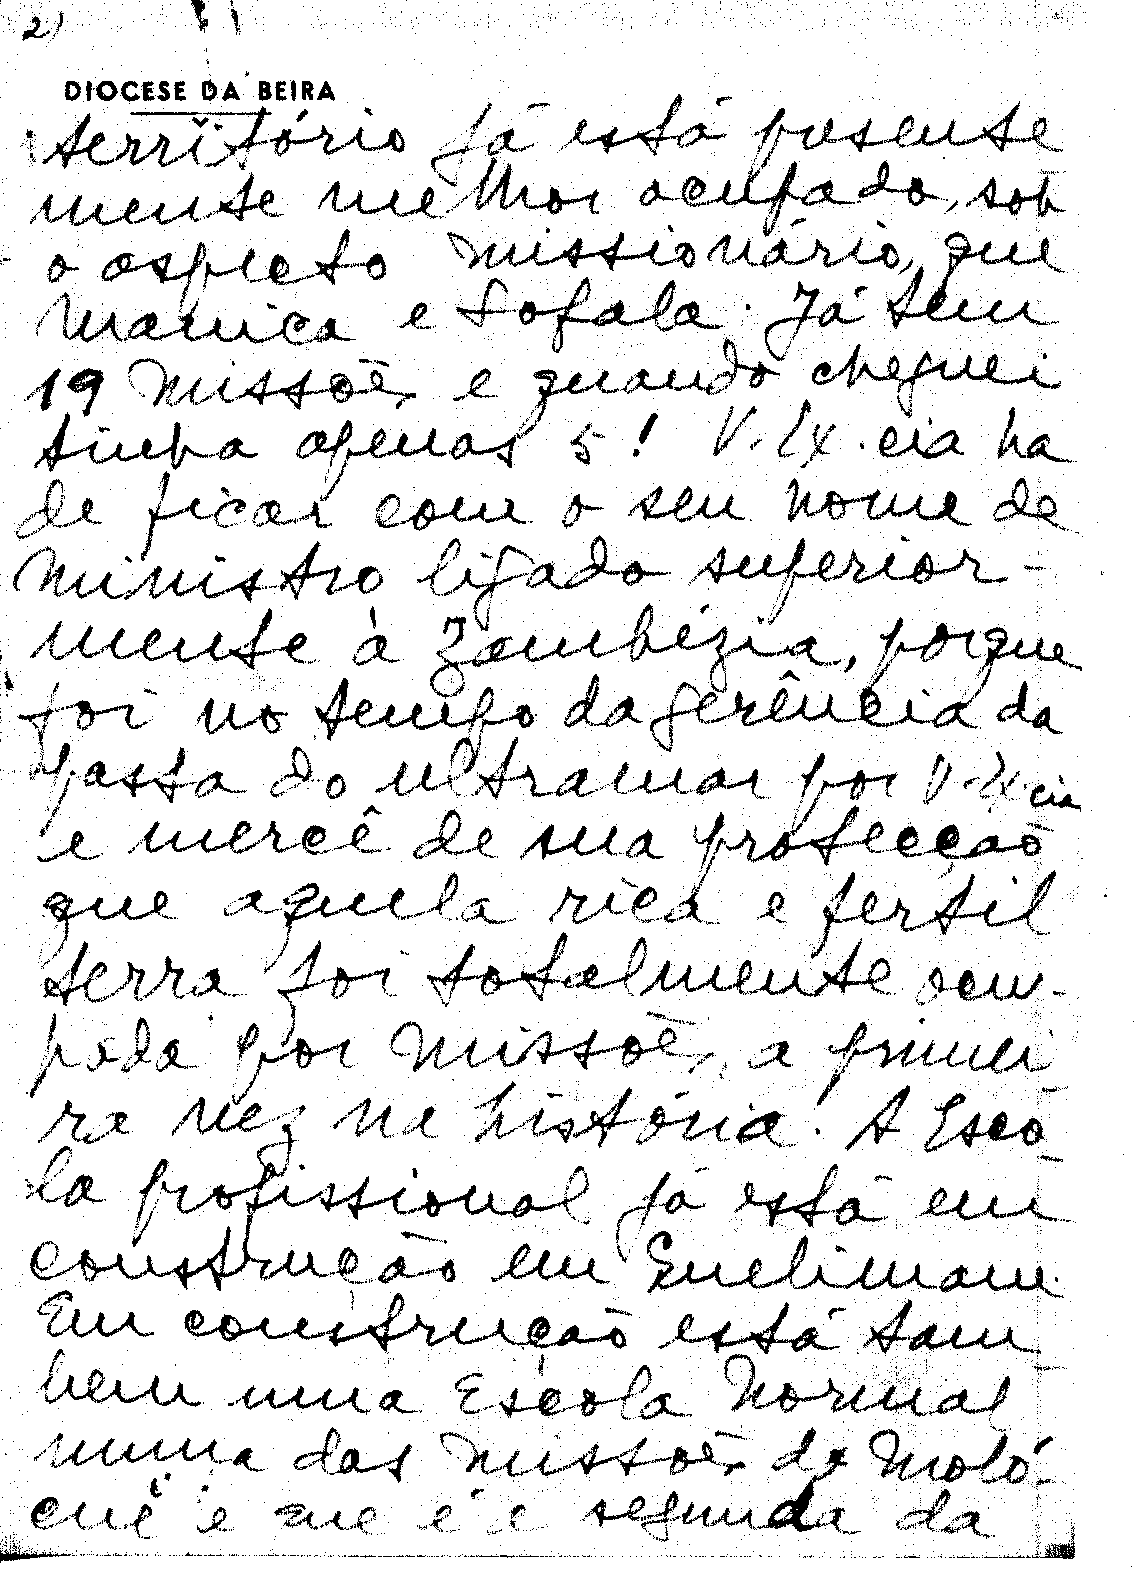 2)
DIOCESE DA BEIRA
território já está presente
mente melhor ocupado, sob
o aspecto missionário, que
Manica e Sofala. Já tem
19 Missões e quando cheguei
tinha apenas 5! V. Ex.cia ha
de ficar com o seu nome de
Ministro ligado superior-
mente à Zambézia, porque
foi no tempo da gerência da
pasta do Ultramar por V. Ex cia
e mercê de sua protecção
que aquela rica e fertil
terra foi totalmente ocu-
pada por Missões, a primei
ra vez na história! A Esco-
la profissional já está em
construção em Quelimane.
Em construção está tam-
bem uma Escola Normal
numa das Missões do Moló-
cuè e que é a segunda da